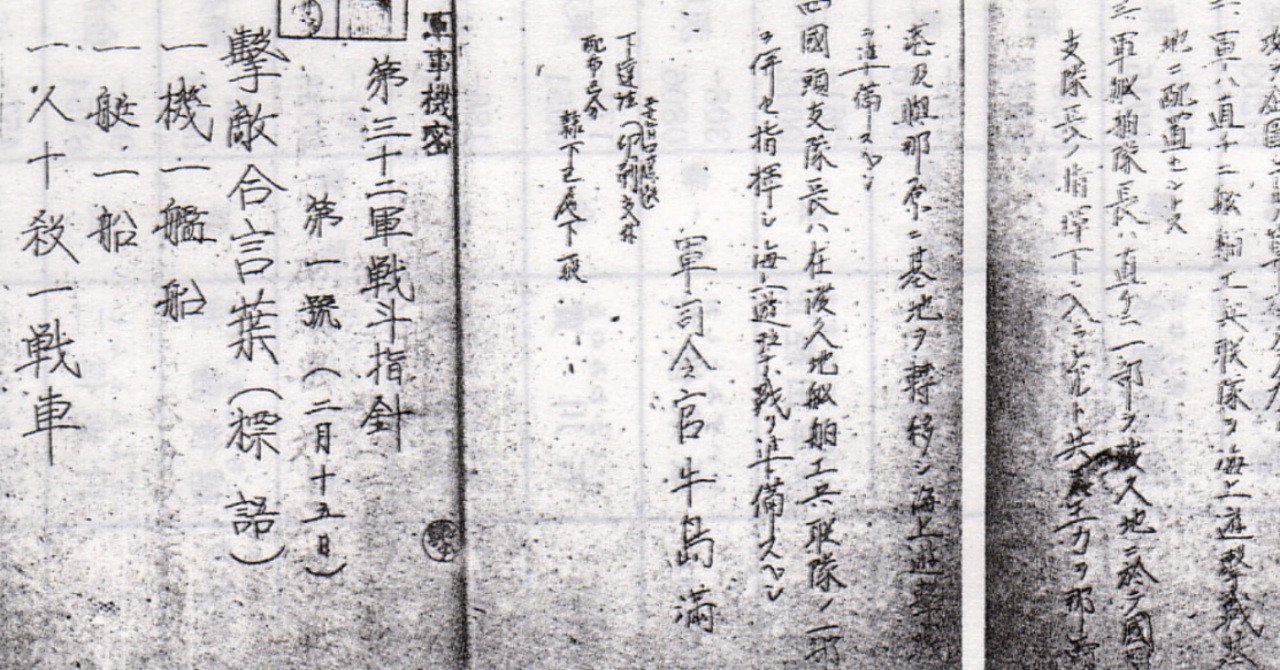 軍ハ直チニ船舶工兵聯隊ヲ海上遊撃戦
地ニ配置セントス
軍船舶隊長ハ直チニ一部ヲ渡久地ニ於テ國
支隊長ノ指揮下ニ入ラシムルト共 主力ヲ那
及與那原ニ基地ヲ轉移シ海上遊撃
準備スヘシ
國頭支隊長ハ在渡久地船舶工兵聯隊ノ一部
ヲ併セ指揮シ海上遊撃戦ヲ準備スヘシ
軍司令官牛島滿
下達法
配布区分
隷下
軍事機密
第三十二軍戦斗指針
第一號(二月十五日)
擊敵合言葉(標語)
一機一艦船
一艇一船
一人十殺一戦車